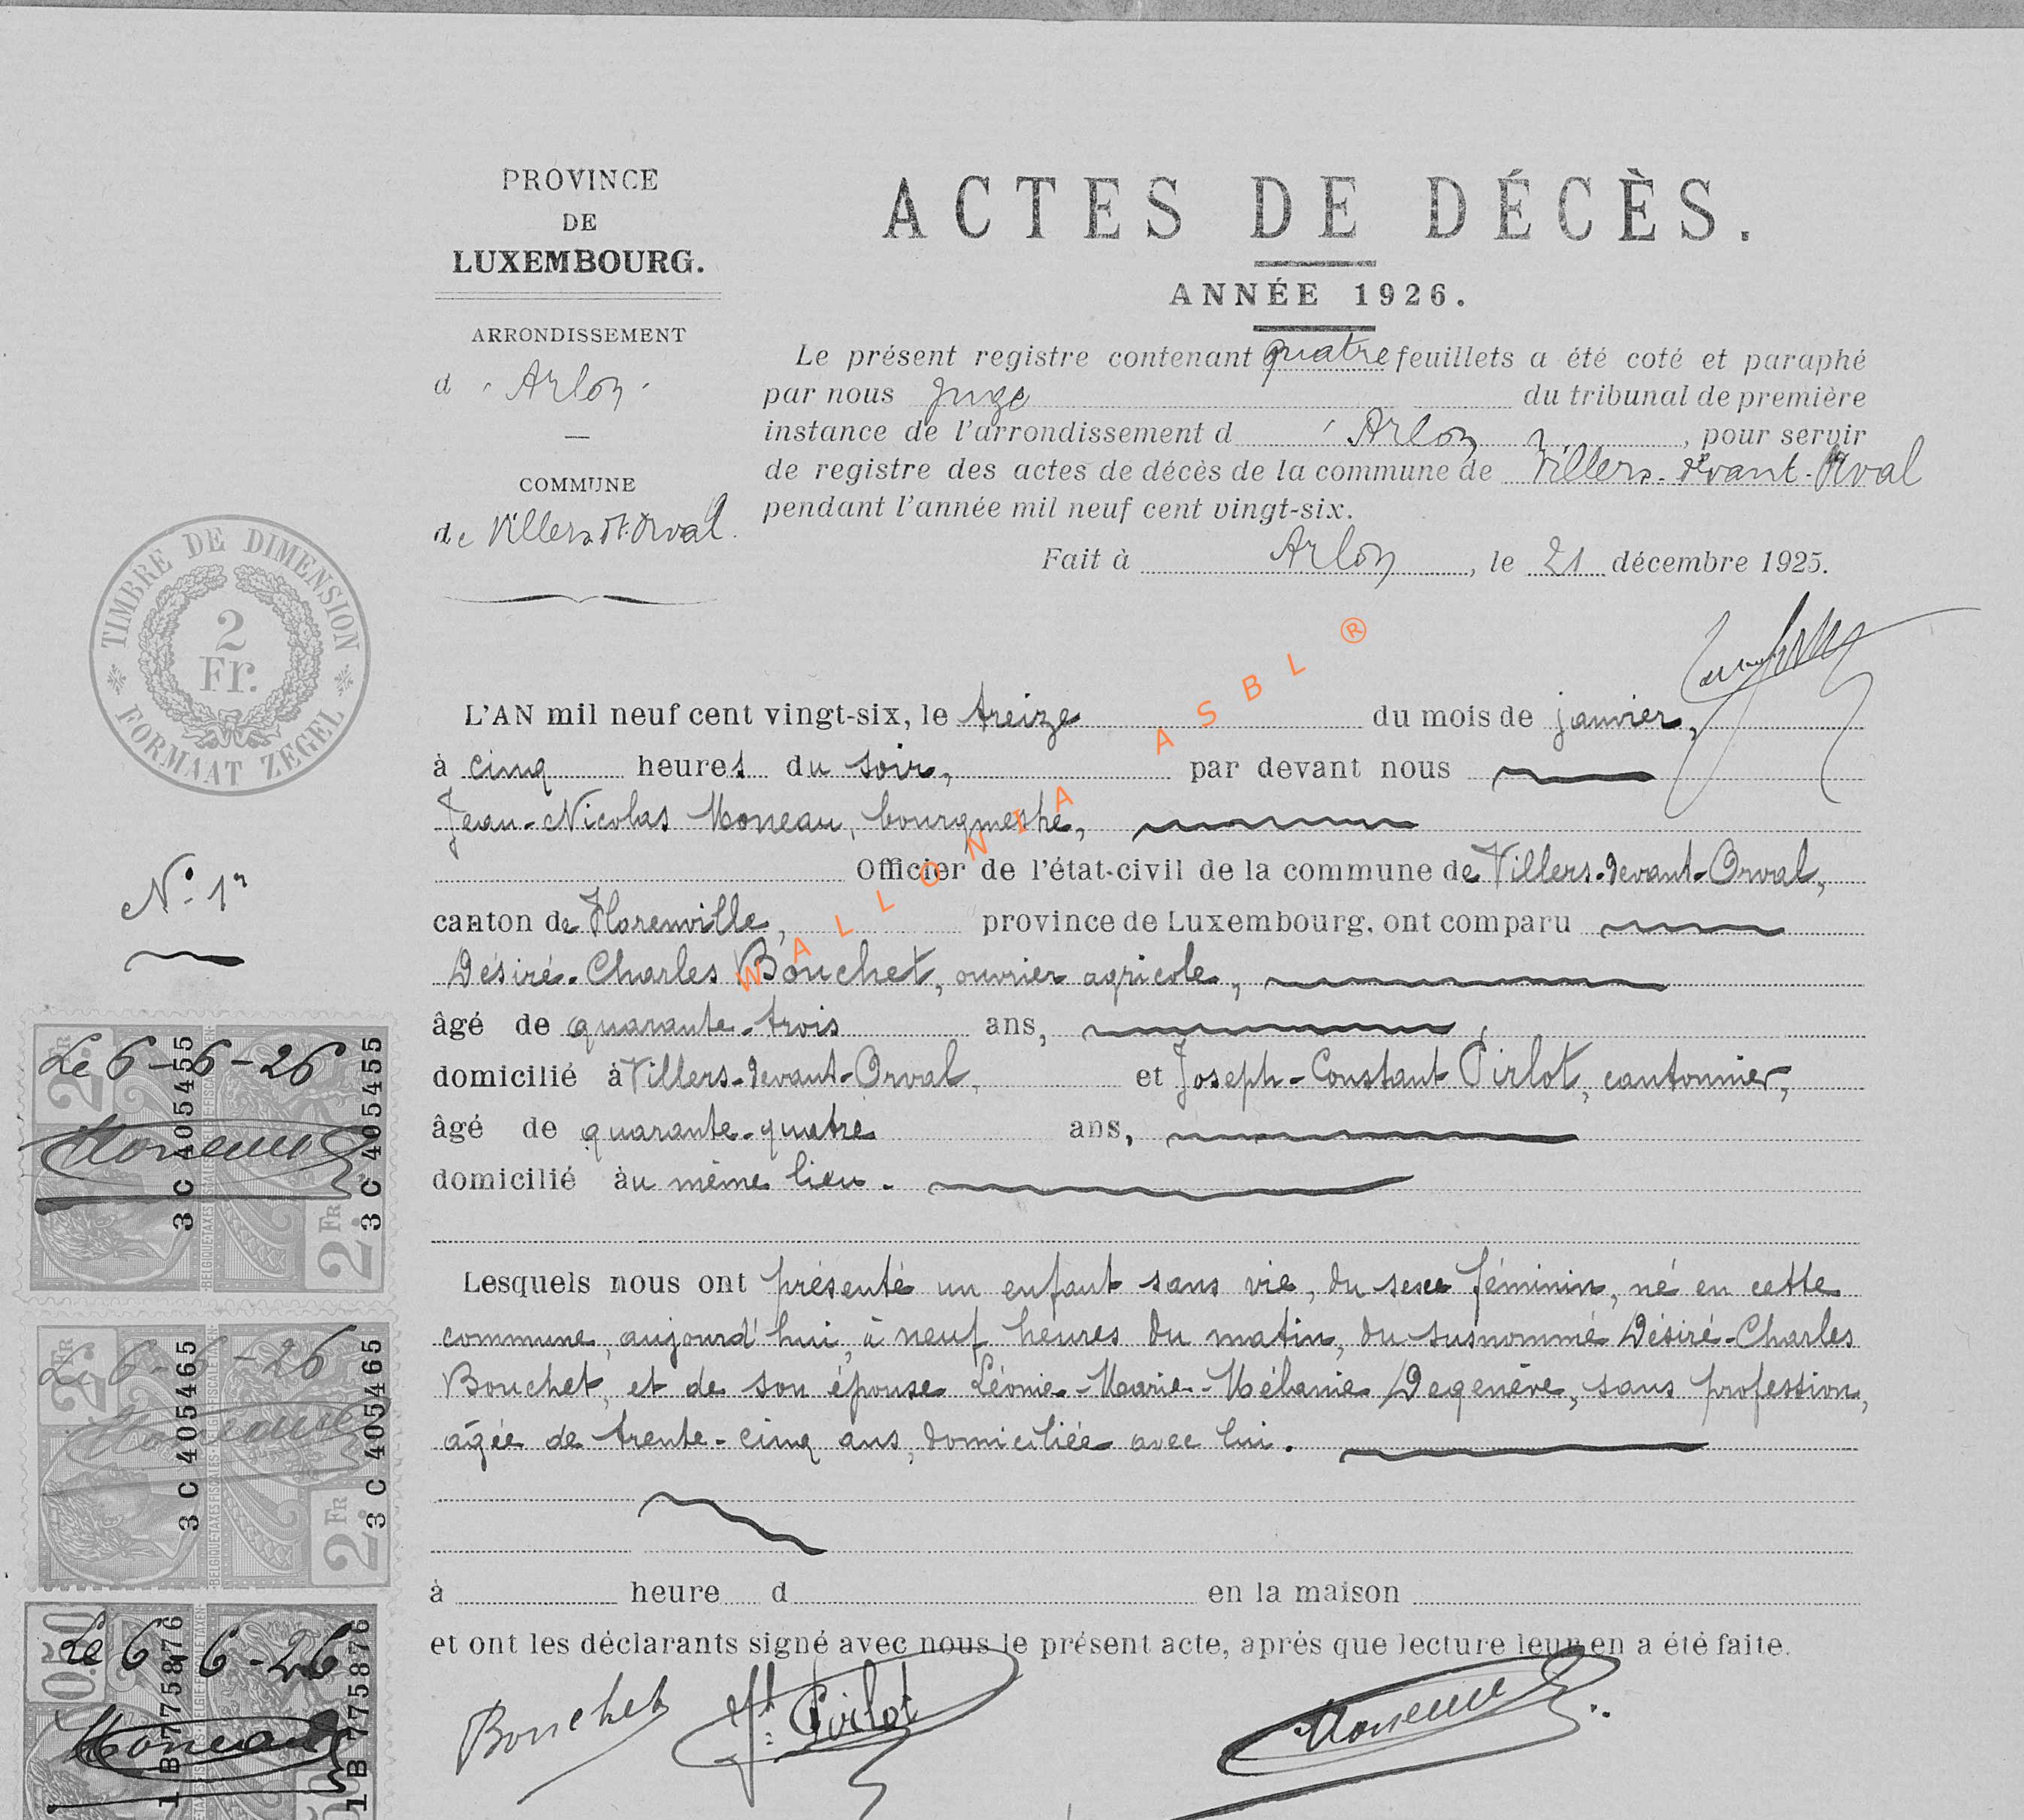 PROVINCE
DE
LUXEMBOURG.
ARRONDISSEMENT
d'Arlon.
COMMUNE
de Villers dt. Orval.
ACTES DE DÉCÈS.
ANNÉE 1926.
Le présent registre contenant quatre feuillets a été coté et paraphé
par nous Juge du tribunal de première
instance de l'arrondissement d'Arlon, pour servir
de registre des actes de décès de la commune de Villers-devant-Orval
pendant l'année mil neuf cent vingt-six.
Fait à Arlon, le 21 décembre 1925.
TIMBRE DE DIMENSION
2
Fr.
FORMAAT ZEGEL
WALLONIA ASBL ®
L'AN mil neuf cent vingt-six, le treize du mois de janvier,
à cinq heures du soir, par devant nous
Jean-Nicolas Moneau, bourgmestre,
Officier de l'état-civil de la commune de Villers-devant-Orval,
N° 1r
canton de Florenville, province de Luxembourg, ont comparu
Désiré-Charles Bouchet, ouvrier agricole,
âgé de quarante-trois ans,
domicilié à Villers-devant-Orval, et Joseph-Constant Pirlot, cantonnier,
âgé de quarante-quatre ans,
domicilié àu même lieu.
Lesquels nous ont présenté un enfant sans vie, du sexe féminin, né en cette
commune, aujourd'hui, à neuf heures du matin, du susnommé Désiré-Charles
Bouchet, et de son épouse Léonie-Marie-Mélanie Degenève, sans profession,
âgée de trente-cinq ans, domiciliée avec lui.
à heure d en la maison
et ont les déclarants signé avec nous le présent acte, après que lecture leur en a été faite.
Bouchet Jh Pirlot Moneau
Le 6-6-26
Moneau
2 FR
3 C 405455
3 C 405455
2 FR
Le 6-6-26
Moneau
2 FR
3 C 405465
3 C 405465
2 FR
Le 6-6-26
Moneau
0.50
1 B 775876
1 B 775876